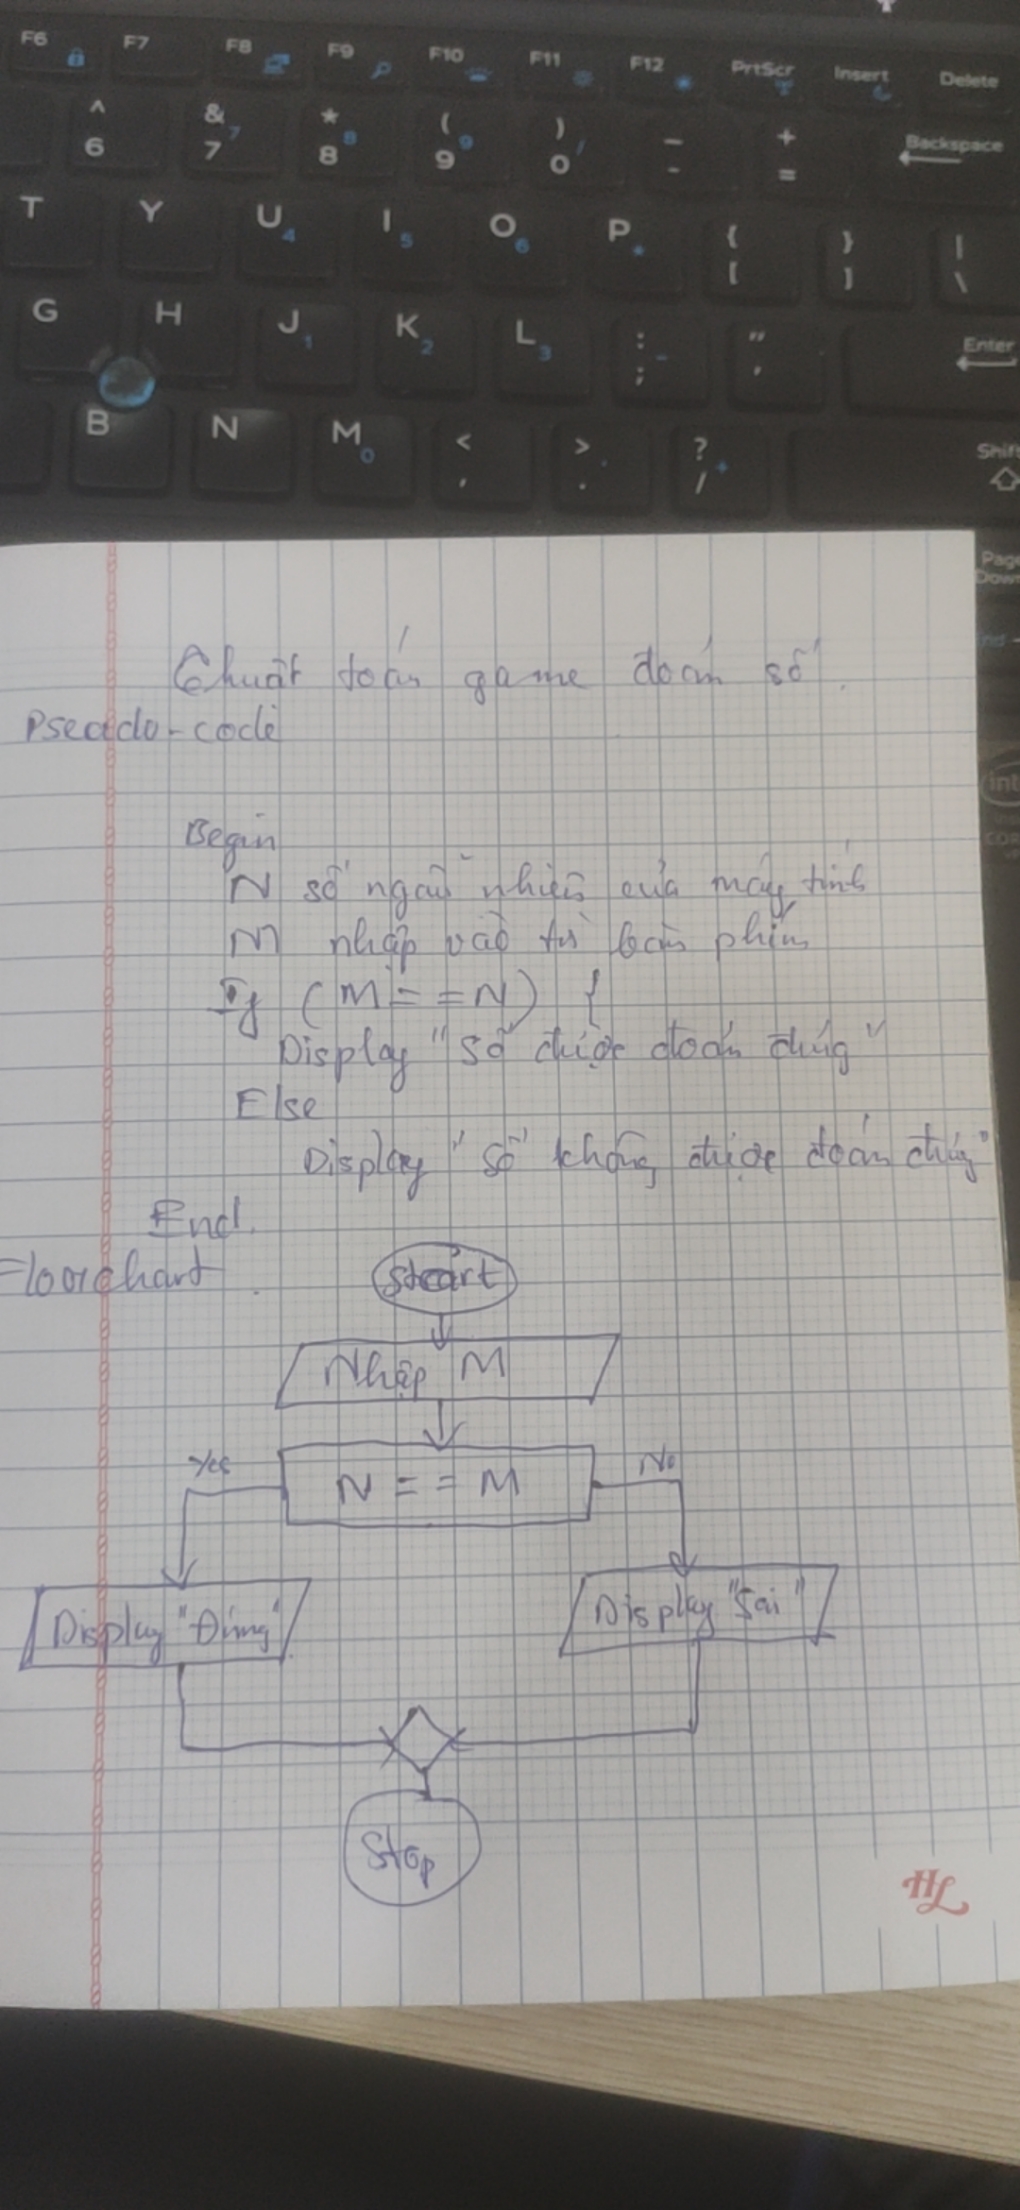 F6 F7 F8 F9 F10 F11 F12 PrtScr Insert Delete
^ & 7 * 8 ( 9 ) / _ + Backspace
6 7 8 9 0 - =
T Y U 4 I 5 O 6 P * { [ } ] | \
G H J 1 K 2 L 3 : ; - " ' Enter
B N M 0 < , > . ? / + Shift
Page
Down
End
int
Chuật toán game đoán số
Pseudo-code
Begin
N số ngẫu nhiên của máy tính
M nhập vào từ bàn phím
If (M == N) {
Display "Số được đoán đúng"
Else
Display "Số không được đoán đúng"
End.
Floorchart
Start
Nhập M
N == M
Yes
No
Display "Đúng"
Display "Sai"
Stop
HL